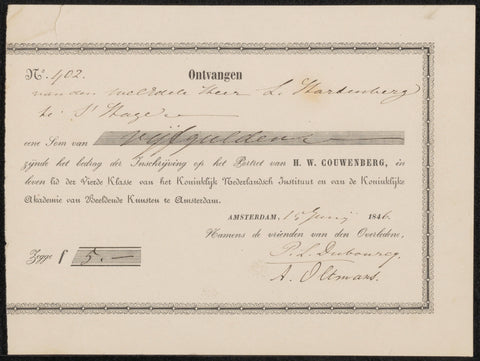 N.º 402. Ontvangen
van den WelEdele Heer L. Hardenberg
te 's Hage
eene Som van vijf guldens
zijnde het bedrag der Inschrijving op het Portret van H. W. COUWENBERG, in
leven lid der Vierde Klasse van het Koninklijk Nederlandsch Instituut en van de Koninklijke
Akademie van Beeldende Kunsten te Amsterdam.
AMSTERDAM, 15 Junij 1846.
Namens de vrienden van den Overledene,
P. L. Dubourcq
Zegge f 5.—
A. Oltmans.